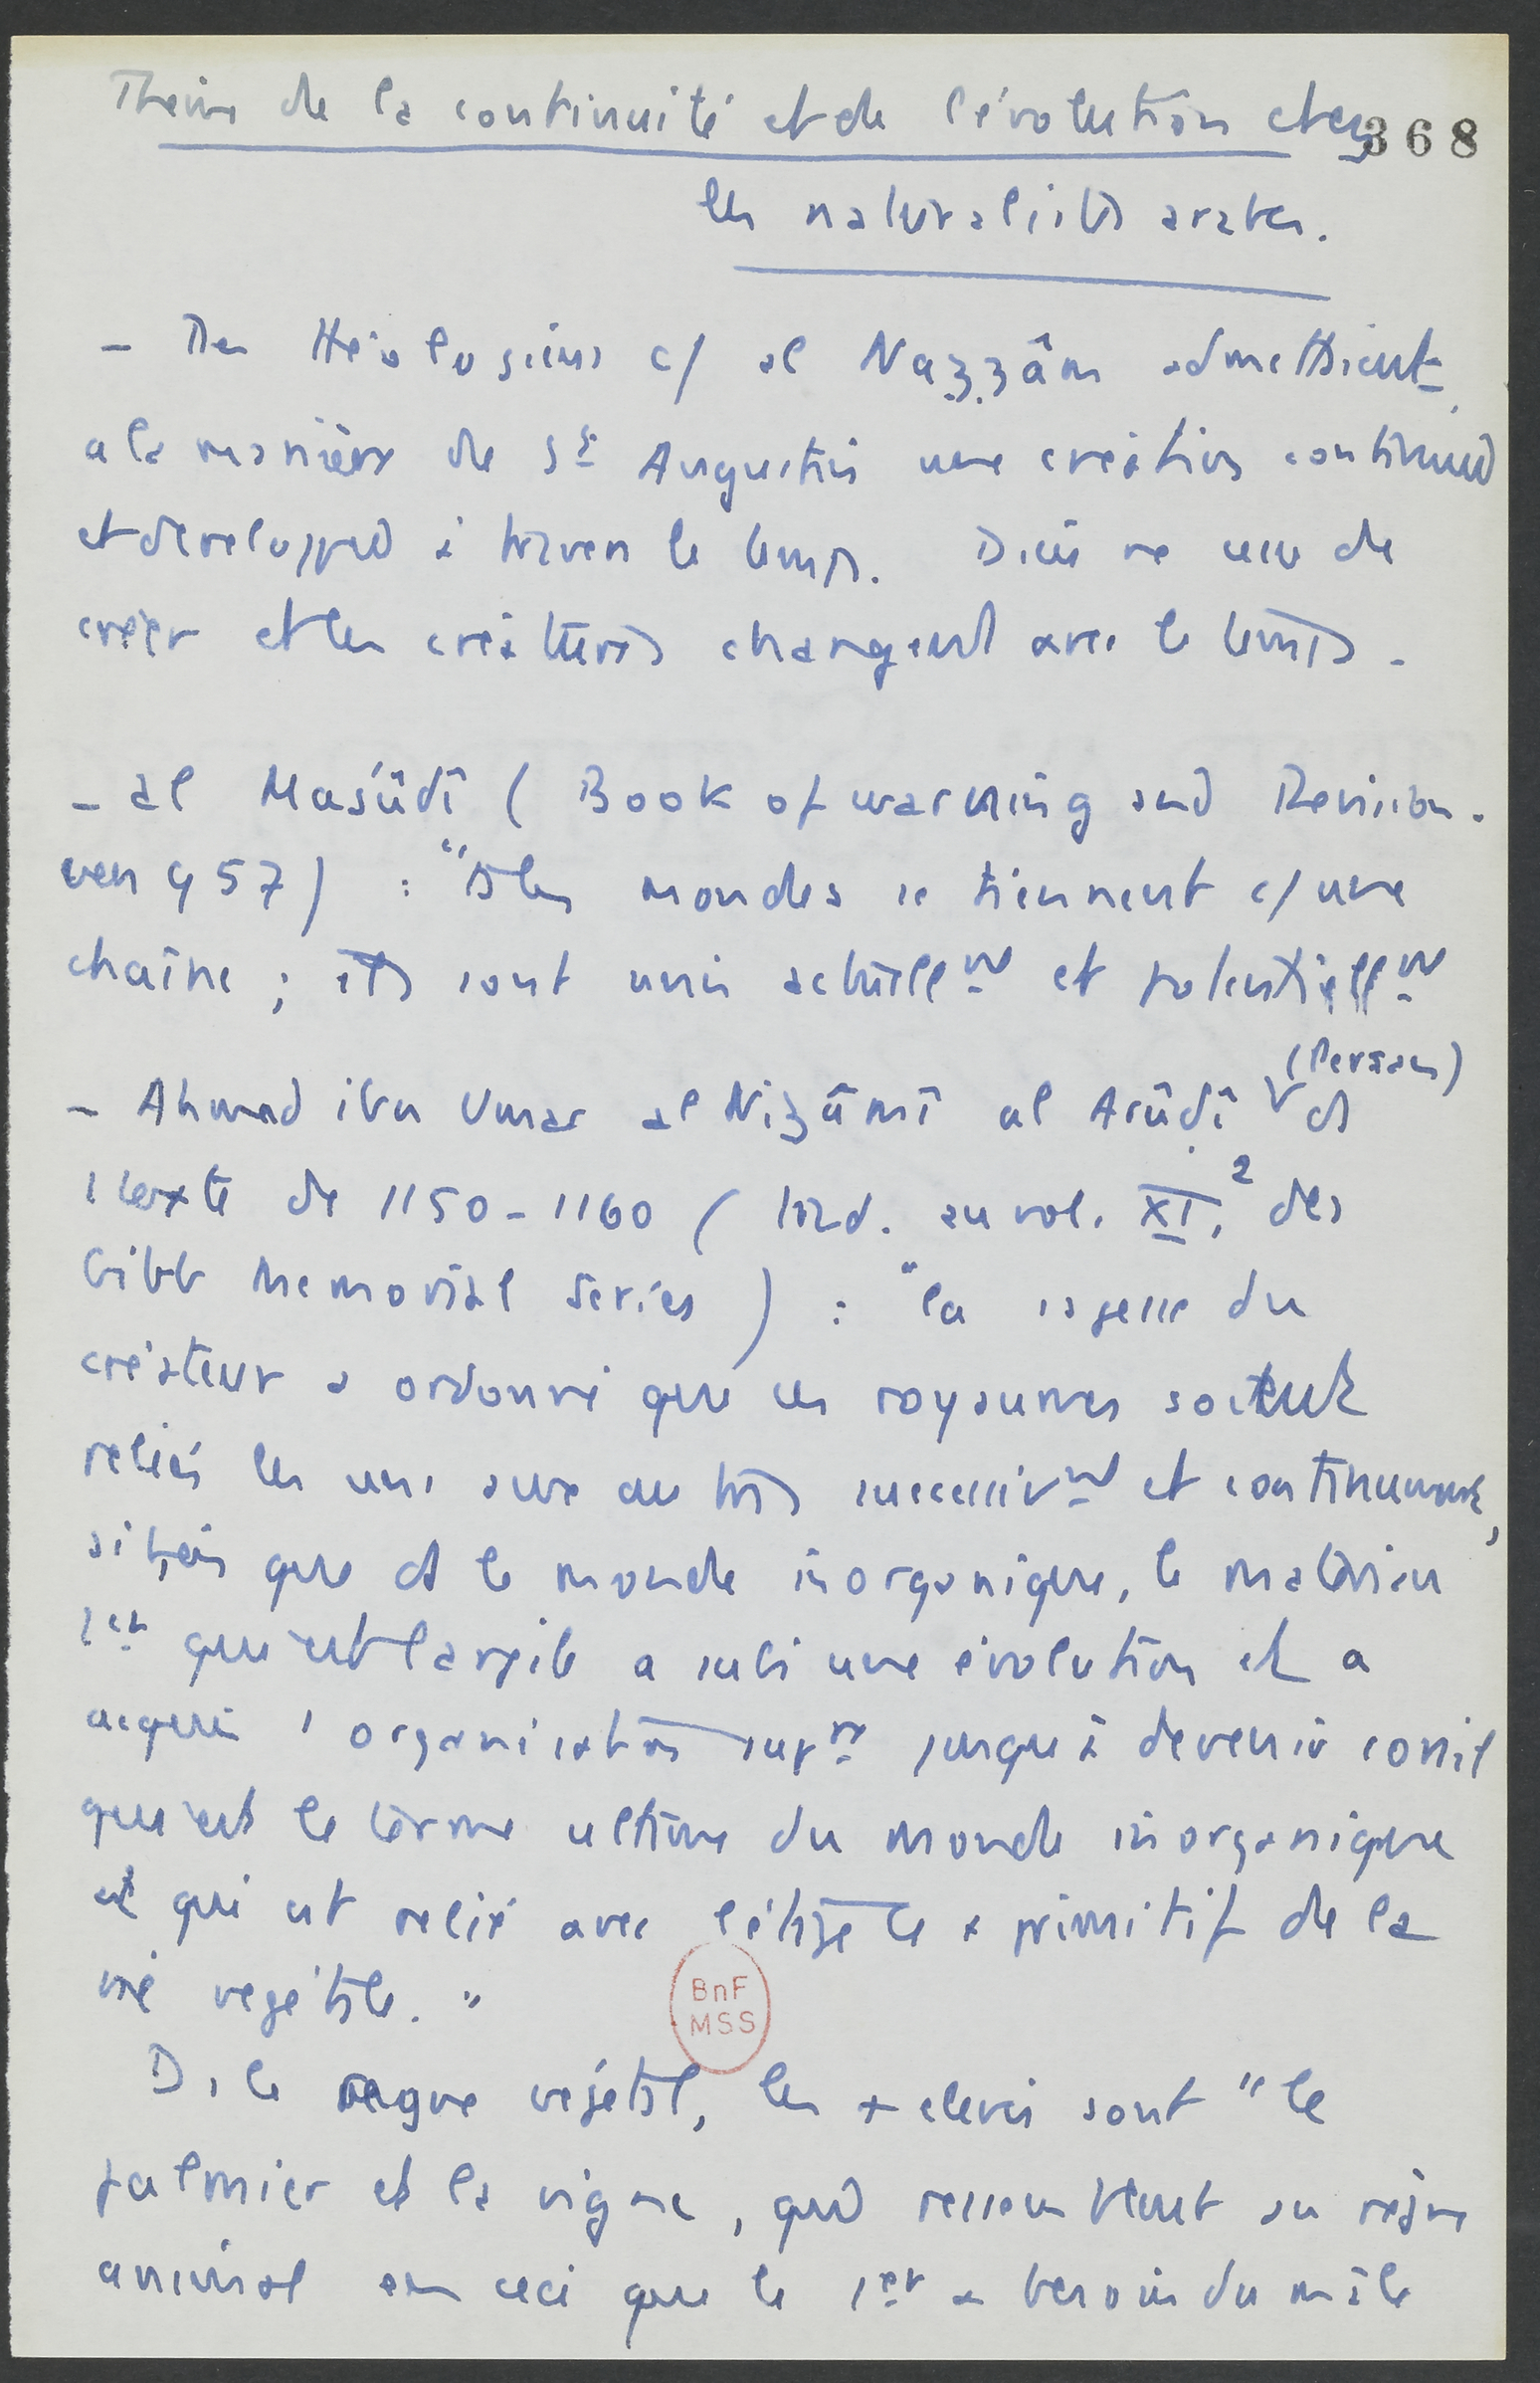 Theme de la continuité et de l'évolution chez 368
les naturalistes arabes.
- Des théologiens c/ al Nazzâm admettaient
a la manière de St Augustin une création continue
et developpee à travers le temps. Dieu ne cesse de
créer et les créatures changent avec le temps.
- al Mas'údî (Book of warning and Revision.
vers 957) : " les mondes se tiennent c/ une
chaîne ; ils sont unis actuellnt et potentiellnt
(Persan)
- Ahmad ibn Umar al Nizâmî al Arûdî ds
1 texte de 1150-1160 ( trad. au vol. XI.2 des
Gibb Memorial Series ) : "la sagesse du
créateur a ordonné que ces royaumes soient
reliés les uns aux autres successivnt et continument,
si bien que ds le monde inorganique, le matériau
1er qui est l'argile a subi une évolution et a
acquis 1 organisation supre jusqu'à devenir corail
qui est le terme ultime du monde inorganique
et qui est relié avec l'étage le + primitif de la
vie végétale. "
Ds le regne végétal, les + eleves sont "le
palmier et la vigne, qui ressemblent au règne
animal en ceci que le 1er a besoin du mâle
BnF
MSS